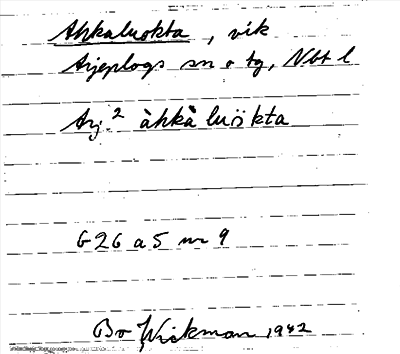 Ahkaluokta, vik
Arjeplogs sn o tg, Nbt l
Arj.² àhkà luòkta
G26 a 5 nr 9
Bo Wickman 1942